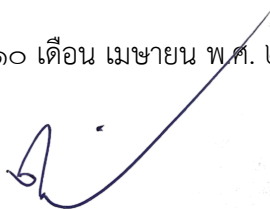 ๑๐ เดือน เมษายน พ.ศ. ๒